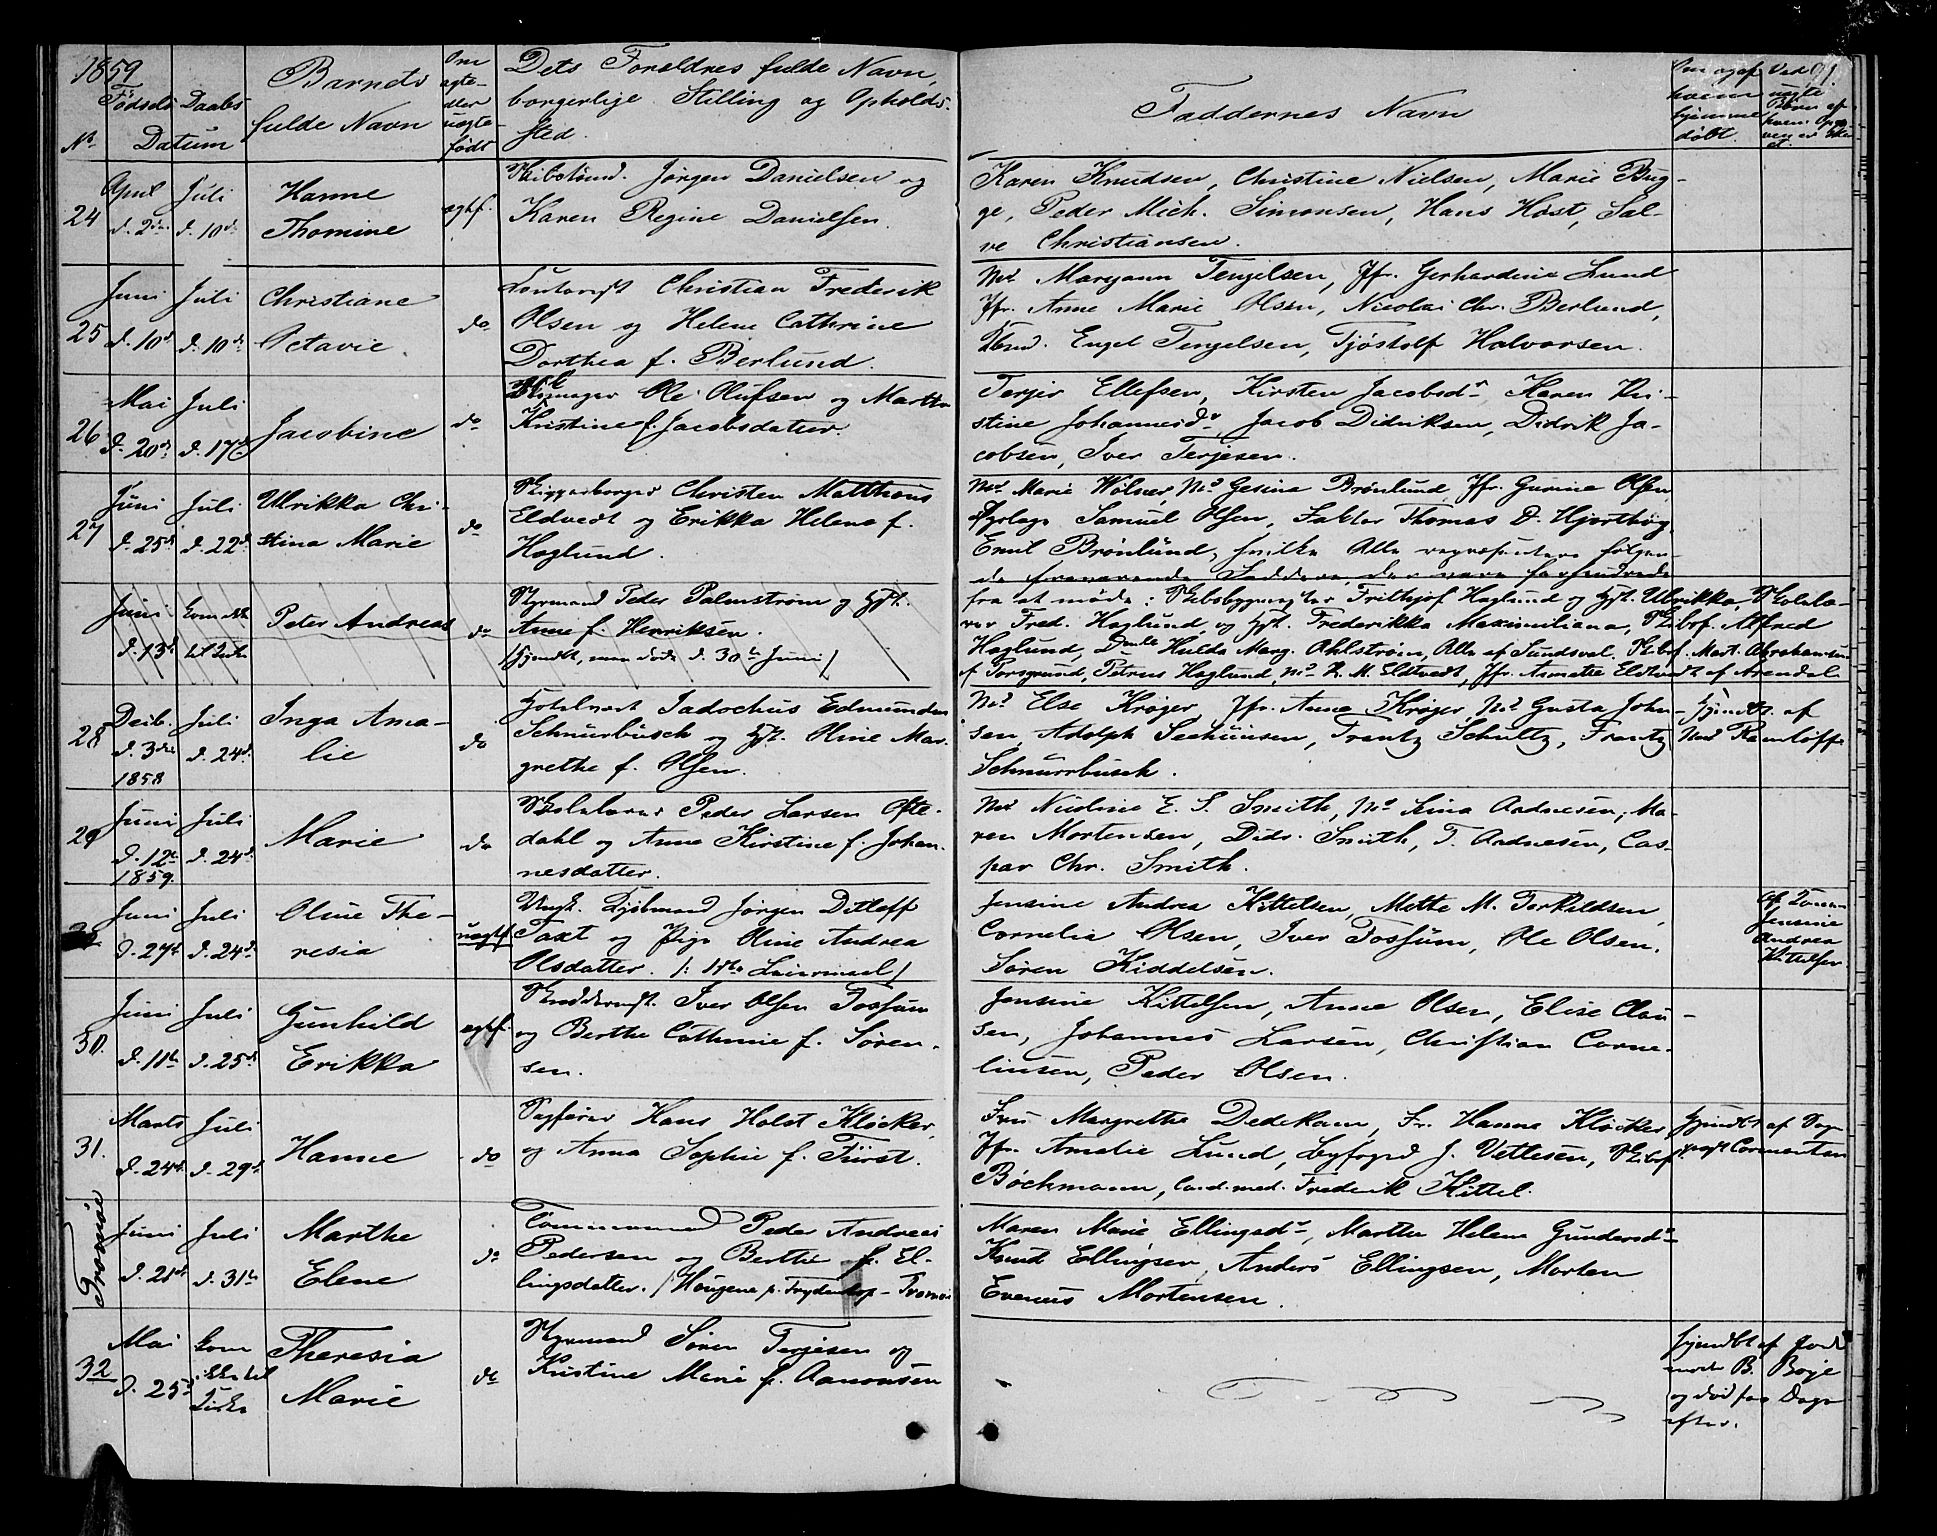 1859
No
Fødsels Daabs
Datum
Barnets
fulde Navn
Om
ægte
eller
uægte
født
Dets Forældres fulde Navn,
borgerlige Stilling og Opholds-
sted.
Faddernes Navn
Om og af
hvem
hjemme
døbt.
Ved
uægte
Børn af
24
April
d. 2den
Juli
d. 10de
Hanne
Thomine
ægtf.
Skibstømd. Jørgen Danielsen og
Karen Regine Danielsen.
Karen Knudsen, Christine Nielsen, Marie Bug-
ge, Peder Mich. Simonsen, Hans Høst, Sal-
ve Christiansen.
25
Juni
d. 10d
Juli
d. 10de
Christiane
Octavie.
do
Christian Frederik
Olsen og Helene Cathrine
Dorthea f. Berlund.
Md Maryann Tengelsen, Jfr. Gerhardine Lund
Jfr. Anne Marie Olsen, Nicolai Chr. Berlund,
Engel Tengelsen, Tjøstolf Halvorsen.
26
Mai
d. 20d
Juli
d. 17d
Jacobine
do
Ole Olufsen og Marthe
Kristine f. Jacobsdatter.
Terjer Ellefsen, Kirsten Jacobsdr, Karen Kri-
stine Johannesdr, Jacob Didriksen, Didrik Ja-
cobsen, Iver Terjesen.
27
Juni
d. 25d
Juli
d. 22d
Ulrikka Chri-
stina Marie
do
Skipperborger Christen Matthæus
Eldvedt og Erikka Helene f.
Haglund.
Md Marie Wölner, Md Gesine Brönlund, Jfr. Gurine Olsen
Samuel Olsen, Faktor Thomas D. Hjorthøg
Emil Brönlund, hvilke Alle repræsentere følgen-
de fraværende Faddere, der vare forhindrede
fra at møde: Skibsbygmester Frithjof Haglund og Hst. Ulrikka, Skolelæ-
rer Fred. Haglund og Hst. Frederikka Maximiliana, Skibsf. Alfred
Haglund, Hulda Marg. Ahlström, Alle af Sundsval. Skibsf. Mart. Abrahamsen
af Porsgrund, Petrus Haglund, Md K. M. Eldtvedt, Jfr. Annette Eldtvedt af Arendal
Juni
d. 13d
Kom ikke
til Kirke
Peter Andreas
do
Styrmand Peder Palmstrøm og Hst.
Anne f. Henriksen.
(Hjemdbt, men døde d. 30te Juni)
28
Decb.
d. 3die
1858
Juli
d. 24d.
Inga Ama-
lie
do
Hotelvært Jadochus Edmunden
Schnurbusch og Hst. Oline Mar-
grethe f. Olsen.
Md Else Krøger, Jfr. Anne Krøger, Md Gusta John-
sen, Adolph Seehuusen, Frantz Schultz, Frantz
Schnurrbusch.
Hjemdbt. af
Md Ramløff
29
Juni
d. 12te
1859.
Juli
d. 24d.
Marie
do
Skolelærer Peder Larsen Ofte-
dahl og Anne Kirstine f. Johan-
nesdatter.
Md Nicoline E. S. Smith, Md Lina Andresen, Ma-
ren Mortensen, Didr. Smith, T. Andresen, Cas-
par Chr. Smith.
Juni
d. 27d.
Juli
d. 24d.
Oline The-
resia
uægtf.
Ungk. Kjøbmand Jørgen Ditleff
Taxt og Pige Oline Andrea
Olsdatter. /: 1ste Leiermaal /
Jensine Andrea Kittelsen, Mette M. Torkildsen,
Cornelia Olsen, Iver Fossum, Ole Olsen,
Søren Kiddelsen.
Jensine
Andrea
Kittelsen.
30.
Juni
d. 11te
Juli
d. 25d
Gunhild
Erikka
ægtf.
Skreddersvd. Iver Olsen Fossum
og Berthe Cathrine f. Søren-
sen.
Jensine Kittelsen, Anne Olsen, Elise Clau-
sen, Johannes Larsen, Christian Corne-
liusen, Peder Olsen.
31.
Marts
d. 24d.
Juli
d. 29d.
Hanne
do
Sagfører Hans Holst Kløcker,
og Anna Sophie f. Fürst.
Fru Margrethe Dedekam, Fr. Hanna Kløcker
Jfr. Amalie Lund, Byfoged J. Vettesen, Skibsf.
Bøckmann, Cand. med. Frederik Kittel.
Hjemdbt af Sogne-
præst Cormontan
Tromøe
Juni
d. 21d.
Juli
d. 31te
Marthe
Elene
do
Tømmermand Peder Andreas
Pedersen og Berthe f. El-
lingsdatter. / Hougene p. Frydenborg - Tromøe
Maren Marie Ellingsdr, Marthe Helene Gundersdr
Knud Ellingsen, Anders Ellingsen, Morten
Evenus Mortensen.
32
Mai
d. 25d
Kom
ikke til
Kirke
Theresia
Marie
do
Styrmand Søren Terjesen og
Kristine Marie f. Aanonsen
hjemdbt af Jorde-
mor B. Boje
og død faa Dage
efter.